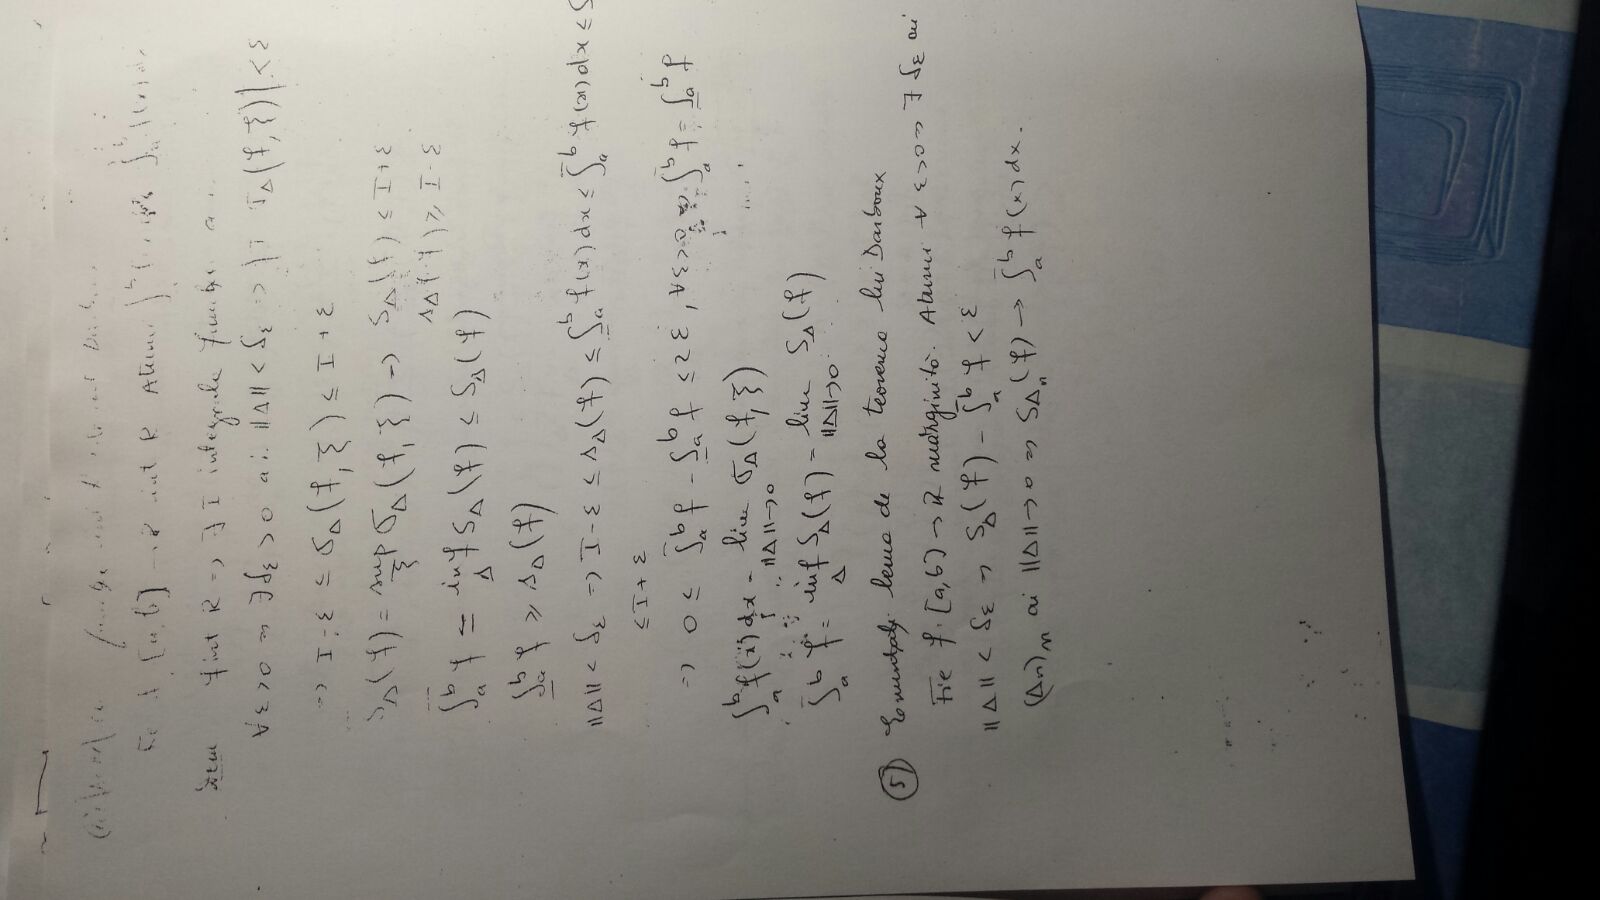 [a,b] → R int R Atunci ∫
Dem f int R => ∃ I integrala funcției a.
∀ε>0 => ∃ δε > 0 a.i. ||Δ|| < δε => |I σΔ(f,ξ)| < ε
=> I-ε ≤ σΔ(f,ξ) ≤ I+ε
SΔ(f) = sup_ξ σΔ(f,ξ) => SΔ(f) ≤ I+ε
sΔ(f) ≥ I-ε
∫̅_a^b f = inf_Δ SΔ(f) ≤ SΔ(f)
∫̲_a^b f ≥ sΔ(f)
||Δ|| < δε => I-ε ≤ sΔ(f) ≤ ∫̲_a^b f(x)dx ≤ ∫̅_a^b f(x)dx ≤ S
≤ I+ε
=> 0 ≤ ∫̅_a^b f - ∫̲_a^b f ≤ 2ε, ∀ε>0 => ∫̅_a^b f = ∫̲_a^b f
∫_a^b f(x)dx = lim_{||Δ||→0} σΔ(f,ξ)
∫̅_a^b f = inf_Δ SΔ(f) = lim_{||Δ||→0} SΔ(f)
5) Enunțați lema de la teorema lui Darboux
Fie f: [a,b] → R mărginită. Atunci ∀ ε>0 => ∃ δε ai
||Δ|| < δε => SΔ(f) - ∫̅_a^b f < ε
(Δn)n ai ||Δ||→0 => SΔn(f) → ∫̅_a^b f(x)dx.